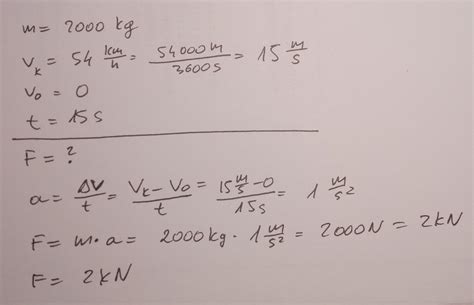 m = 2000 kg
Vk = 54 km/h = 54000m/3600s = 15 m/s
V0 = 0
t = 15s
F = ?
a = ΔV/t = Vk - V0/t = 15 m/s - 0/15s = 1 m/s²
F = m · a = 2000kg · 1 m/s² = 2000N = 2kN
F = 2kN